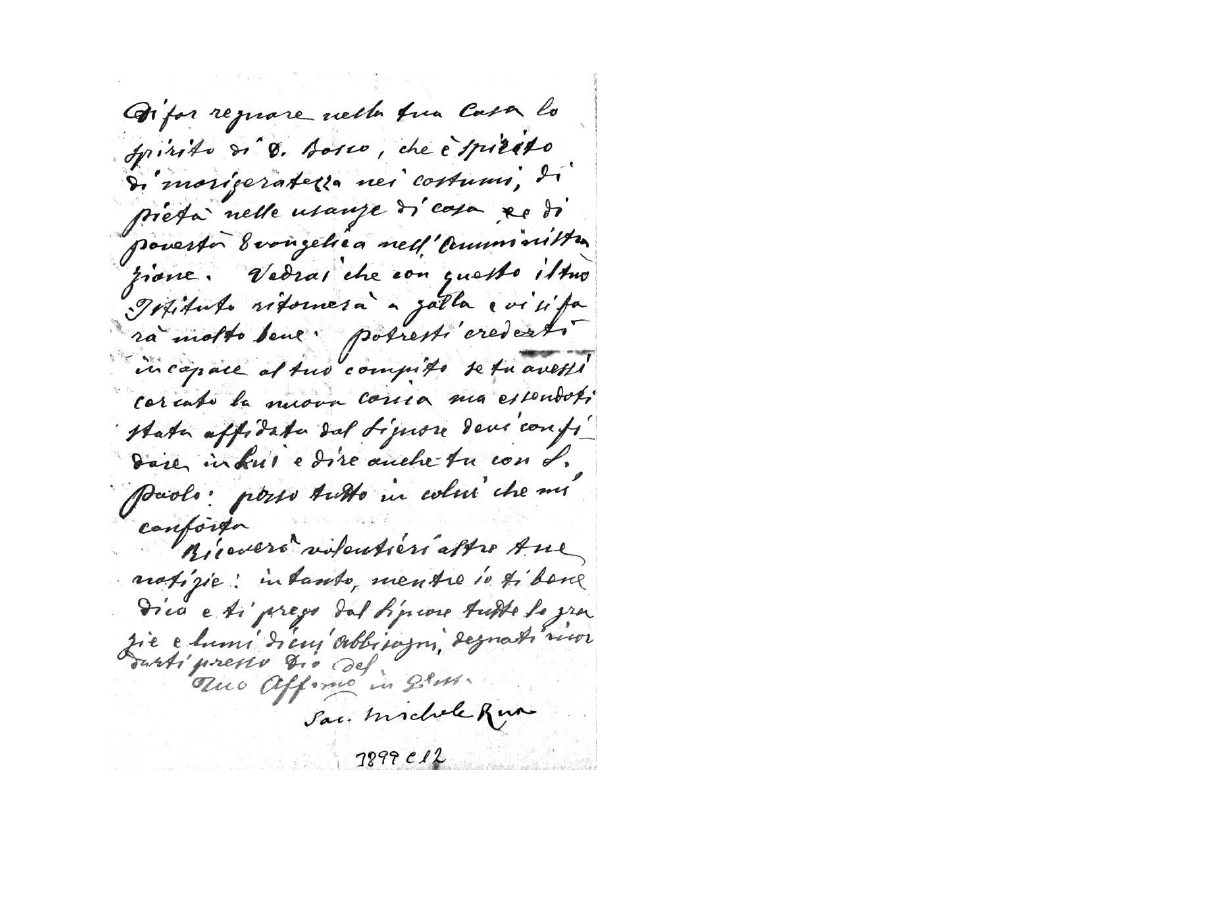 Di far regnare nella tua Casa lo
spirito di D. Bosco, che è spirito
di morigeratezza nei costumi, di
pietà nelle usanze di casa e di
povertà Evangelica nell'Amministra
zione. Vedrai che con questo il tuo
Istituto ritornerà a galla e vi si fa
rà molto bene. Potresti crederti
incapace al tuo compito se tu avessi
cercato la nuova carica ma essendoti
stata affidata dal Signore devi confi
dare in Lui e dire anche tu con S.
Paolo: posso tutto in colui che mi
conforta
Riceverò volentieri altre tue
notizie: intanto, mentre io ti bene
dico e ti prego dal Signore tutte le gra
zie e lumi di cui abbisogni, degnati ricor
darti presso Dio del
Tuo Aff.mo in
Sac. Michele Rua
1899 C 12